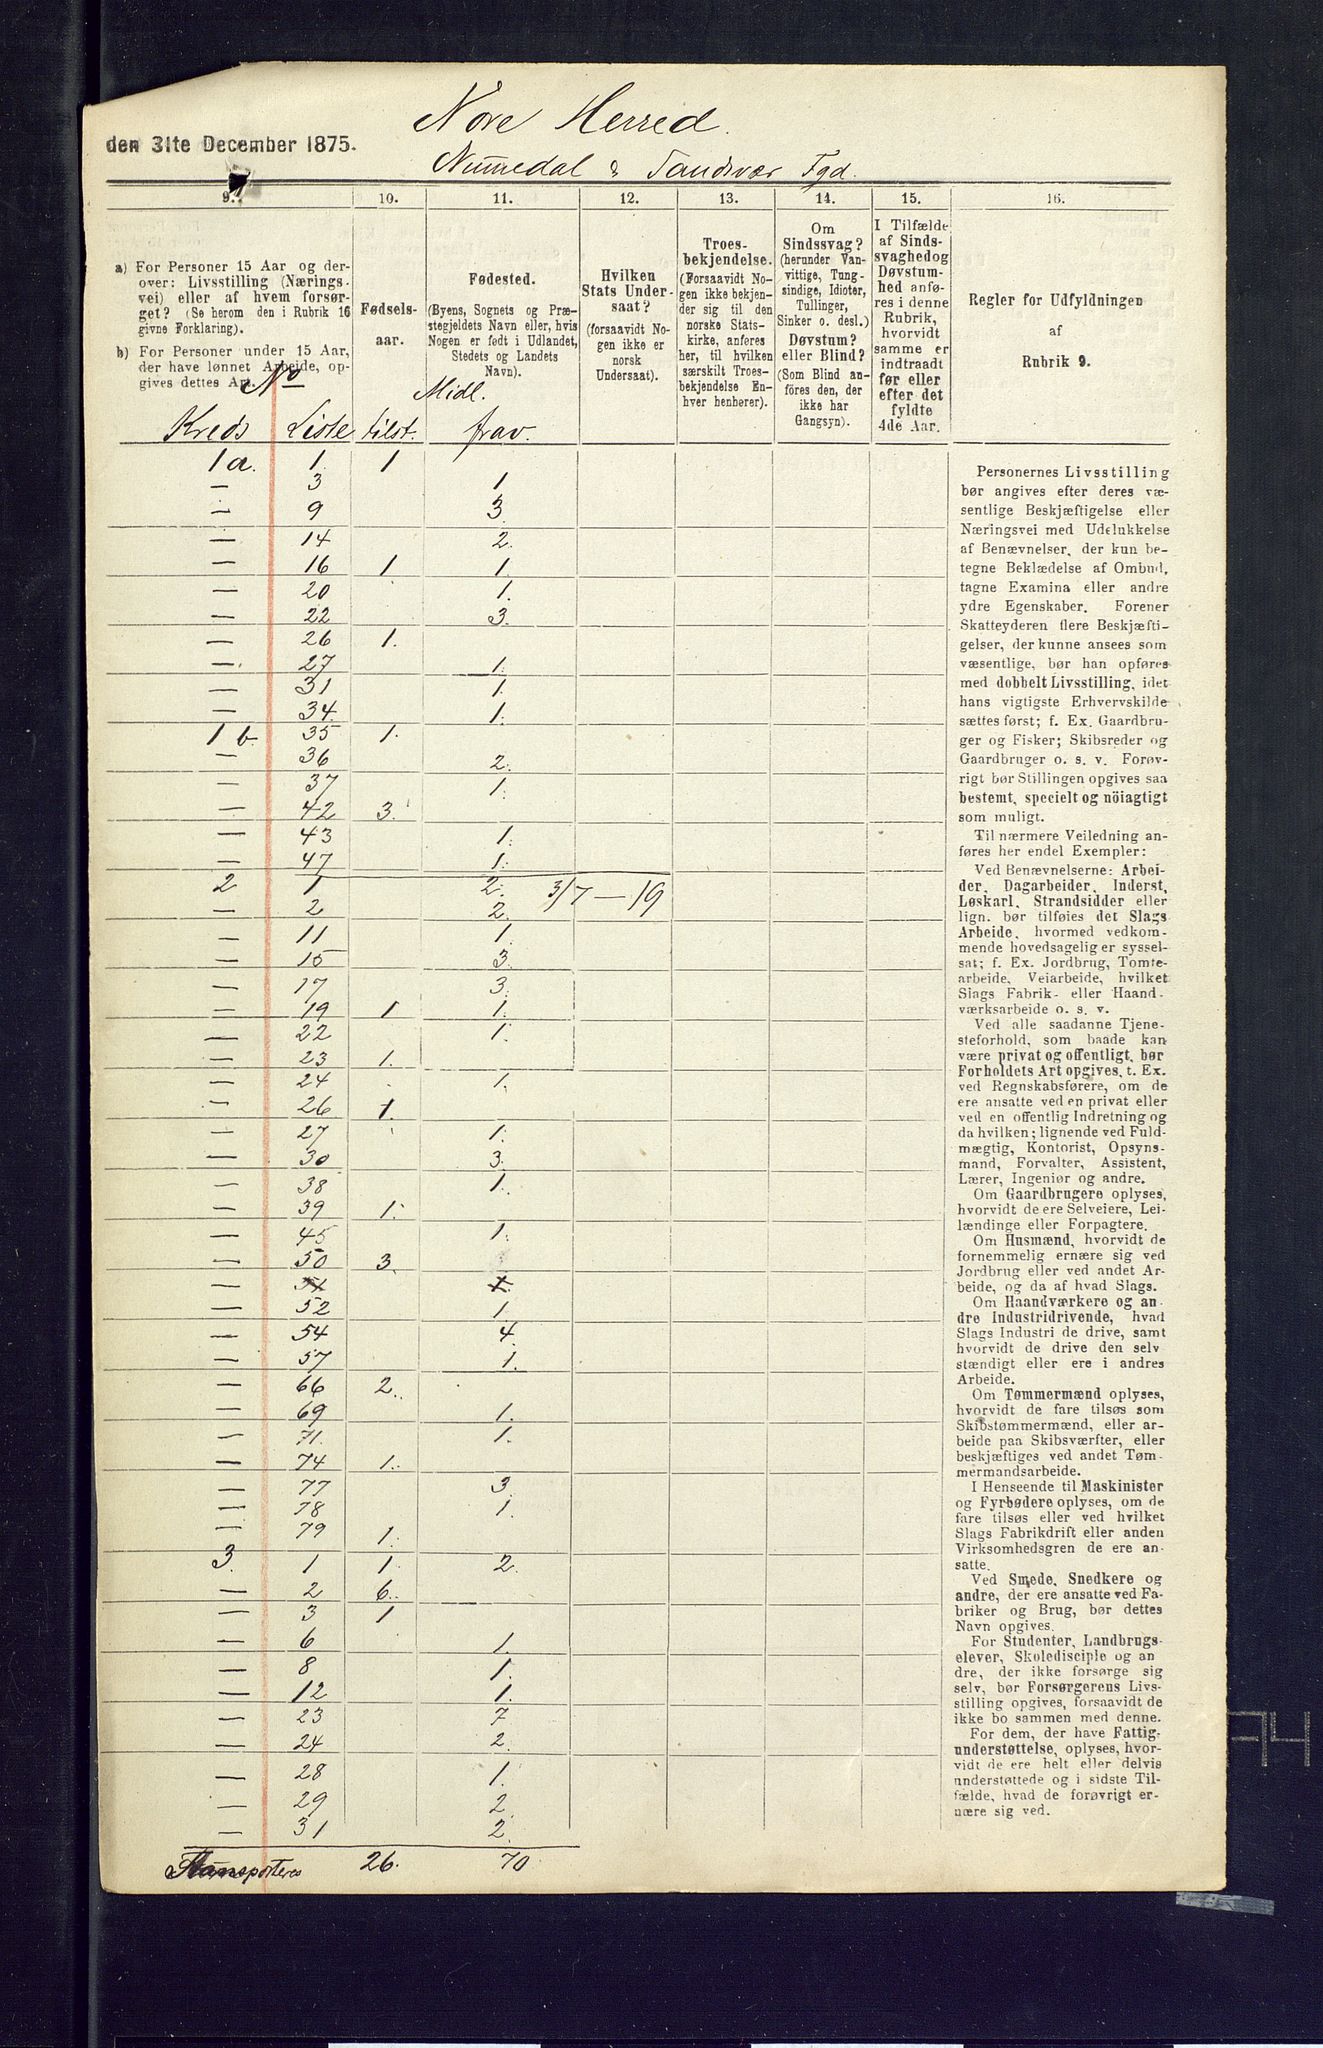 Nore Herred.
den 31te December 1875.
Numedal & Sandsvær Fgd.
9. 10. 11. 12. 13. 14. 15. 16.
a) For Personer 15 Aar og der-
over: Livsstilling (Nærings-
vei) eller af hvem forsør-
get? (Se herom den i Rubrik 16
givne Forklaring).
b) For Personer under 15 Aar,
der have lønnet Arbeide, op-
gives dettes Art.
Fødsels-
aar.
Fødested.
(Byens, Sognets og Præ-
stegjeldets Navn eller, hvis
Nogen er født i Udlandet,
Stedets og Landets
Navn).
Hvilken
Stats Under-
saat?
(forsaavidt No-
gen ikke er
norsk
Undersaat).
Troes-
bekjendelse.
(Forsaavidt No-
gen ikke bekjen-
der sig til den
norske Stats-
kirke, anføres
her, til hvilken
særskilt Troes-
bekjendelse En-
hver henhører).
Om
Sindssvag?
(herunder Van-
vittige, Tung-
sindige, Idioter,
Tullinger,
Sinker o. desl.)
Døvstum?
eller Blind?
(Som Blind an-
föres den, der
ikke har
Gangsyn).
I Tilfælde
af Sinds-
svaghedog
Døvstum-
hed anfø-
res i denne
Rubrik,
hvorvidt
samme er
indtraadt
før eller
efter det
fyldte
4de Aar.
Regler for Udfyldningen
af
Rubrik 9.
No Midl.
Kreds Liste tilst. frav.
1 a. 1. 1
— 3 1
— 9 3.
— 14 2.
— 16 1 1.
— 20 1.
— 22 3.
— 26 1.
— 27 1.
— 31 1.
— 34. 1.
1 b. 35 1.
— 36 2.
— 37 1.
— 42 3.
— 43 1.
— 47 1.
2 1 2. 3/7 — 19
— 2 2.
— 11 1.
— 15 3.
— 17 3.
— 19 1 1.
— 22 1.
— 23 1.
— 24 1.
— 26 1.
— 27 1.
— 30 3.
— 38 1.
— 39 1.
— 45 1.
— 50 3.
— 51 1.
— 52 1.
— 54 4.
— 57 1.
— 66 2.
— 69 1.
— 71. 1.
— 74 1.
— 77 3.
— 78 1.
— 79 1.
3. 1 1. 2.
— 2 6.
— 3 1
— 6 1.
— 8 1.
— 12 1.
— 23 7
— 24 2.
— 28 1.
— 29 2.
— 31 2.
Transporteres 26. 70
Personernes Livsstilling
bør angives efter deres væ-
sentlige Beskjæftigelse eller
Næringsvei med Udelukkelse
af Benævnelser, der kun be-
tegne Beklædelse af Ombud,
tagne Examina eller andre
ydre Egenskaber. Forener
Skatteyderen flere Beskjæfti-
gelser, der kunne ansees som
væsentlige, bør han opføres
med dobbelt Livsstilling, idet
hans vigtigste Erhvervskilde
sættes først; f. Ex. Gaardbru-
ger og Fisker; Skibsreder og
Gaardbruger o. s. v. Forøv-
rigt bør Stillingen opgives saa
bestemt, specielt og nöiagtigt
som muligt.
Til nærmere Veiledning an-
føres her endel Exempler:
Ved Benævnelserne: Arbei-
der, Dagarbeider, Inderst,
Løskarl, Strandsidder eller
lign. bør tilføies det Slags
Arbeide, hvormed vedkom-
mende hovedsagelig er syssel-
sat; f. Ex. Jordbrug, Tomte-
arbeide, Veiarbeide, hvilket
Slags Fabrik- eller Haand-
værksarbeide o. s. v.
Ved alle saadanne Tjene-
steforhold, som baade kan
være privat og offentligt, bør
Forholdets Art opgives, t. Ex.
ved Regnskabsførere, om de
ere ansatte ved en privat eller
ved en offentlig Indretning og
da hvilken; lignende ved Fuld-
mægtig, Kontorist, Opsyns-
mand, Forvalter, Assistent,
Lærer, Ingeniør og andre.
Om Gaardbrugere oplyses,
hvorvidt de ere Selveiere, Lei-
lændinge eller Forpagtere.
Om Husmænd, hvorvidt de
fornemmelig ernære sig ved
Jordbrug eller ved andet Ar-
beide, og da af hvad Slags.
Om Haandværkere og an
dre Industridrivende, hvad
Slags Industri de drive, samt
hvorvidt de drive den selv
stændigt eller ere i andres
Arbeide.
Om Tømmermænd oplyses,
hvorvidt de fare tilsøs som
Skibstømmermænd, eller ar-
beide paa Skibsværfter, eller
beskjæftiges ved andet Tøm-
mermandsarbeide.
I Henseende til Maskinister
og Fyrbødere oplyses, om de
fare tilsøs eller ved hvilket
Slags Fabrikdrift eller anden
Virksomhedsgren de ere an-
satte.
Ved Smede, Snedkere og
andre, der ere ansatte ved Fa-
briker og Brug, bør dettes
Navn opgives.
For Studenter, Landbrugs-
elever, Skoledisciple og an
dre, der ikke forsørge sig
selv, bør Forsørgerens Livs-
stilling opgives, forsaavidt de
ikke bo sammen med denne.
For dem, der have Fattig-
understøttelse, oplyses, hvor-
vidt de ere helt eller delvis
understøttede og i sidste Til-
fælde, hvad de forøvrigt er-
nære sig ved.